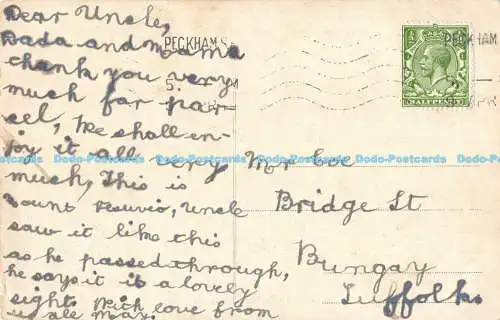 Dear Uncle,
Dada and Mama
thank you very
much for par-
cel, We shall en-
joy it all very
much, This is
Mount Vesuvio, Uncle
saw it like this
as he passed through,
he says it is a lovely
sight. With love from
us all May.
PECKHAM
5.
PECKHAM
HALFPENNY
Mr Coe
Bridge St
Bungay
Suffolk
Dodo-Postcards Dodo-Postcards Dodo-Postcards Dodo-Postcards
Dodo-Postcards Dodo-Postcards Dodo-Postcards Dodo-Postcards